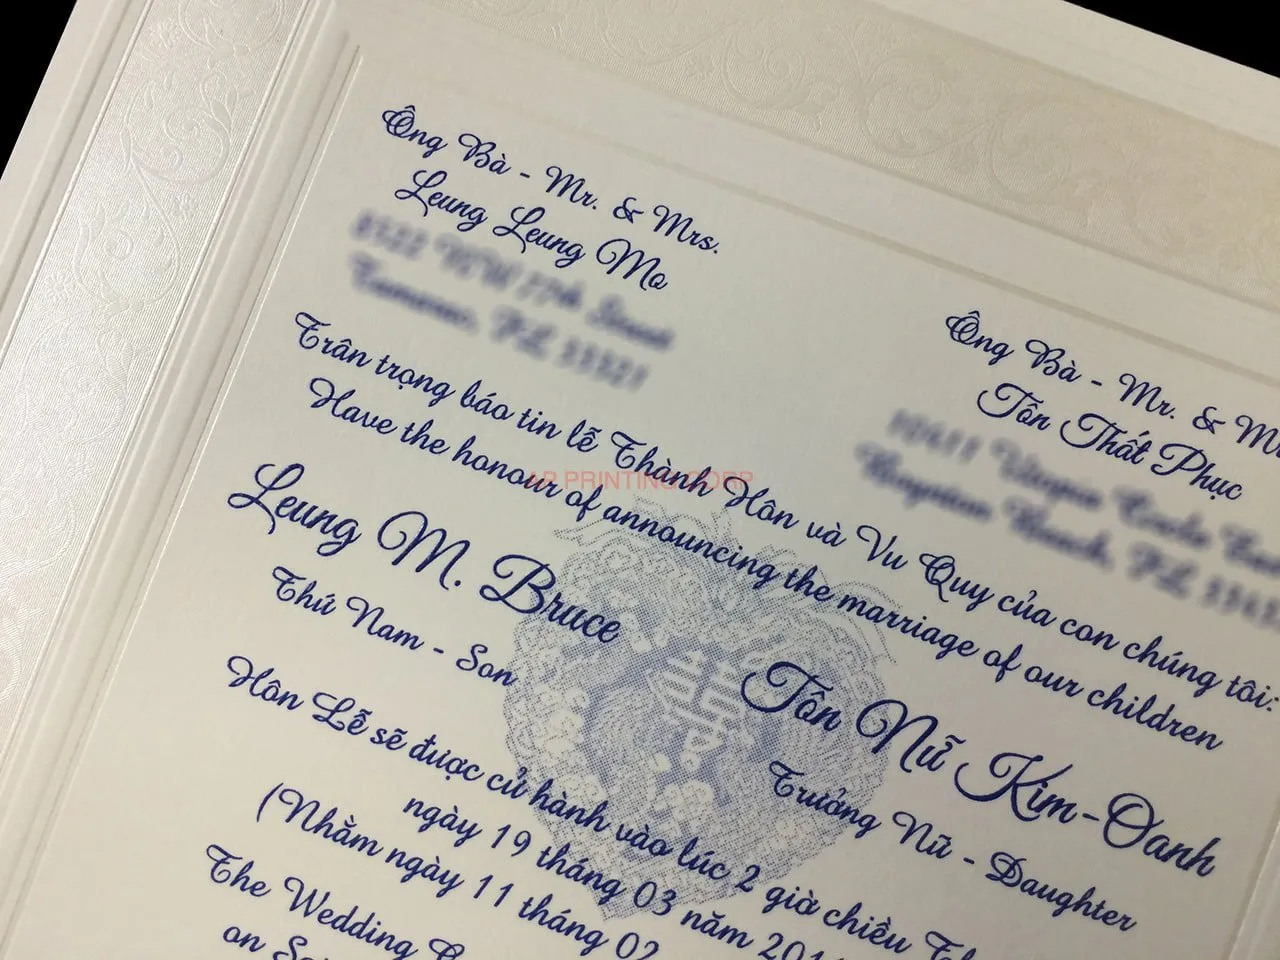 Ông Bà - Mr. & Mrs.
Leung Leung Mo
Ông Bà - Mr. &
Tôn Thất Phục
Trân trọng báo tin lễ Thành Hôn và Vu Quy của con chúng tôi:
Have the honour of announcing the marriage of our children
AP PRINTING CORP
Leung M. Bruce
Thứ Nam - Son
Tôn Nữ Kim-Oanh
Trưởng Nữ - Daughter
Hôn Lễ sẽ được cử hành vào lúc 2 giờ chiều
ngày 19 tháng 03 năm
(Nhằm ngày 11 tháng 02
The Wedding
on
囍